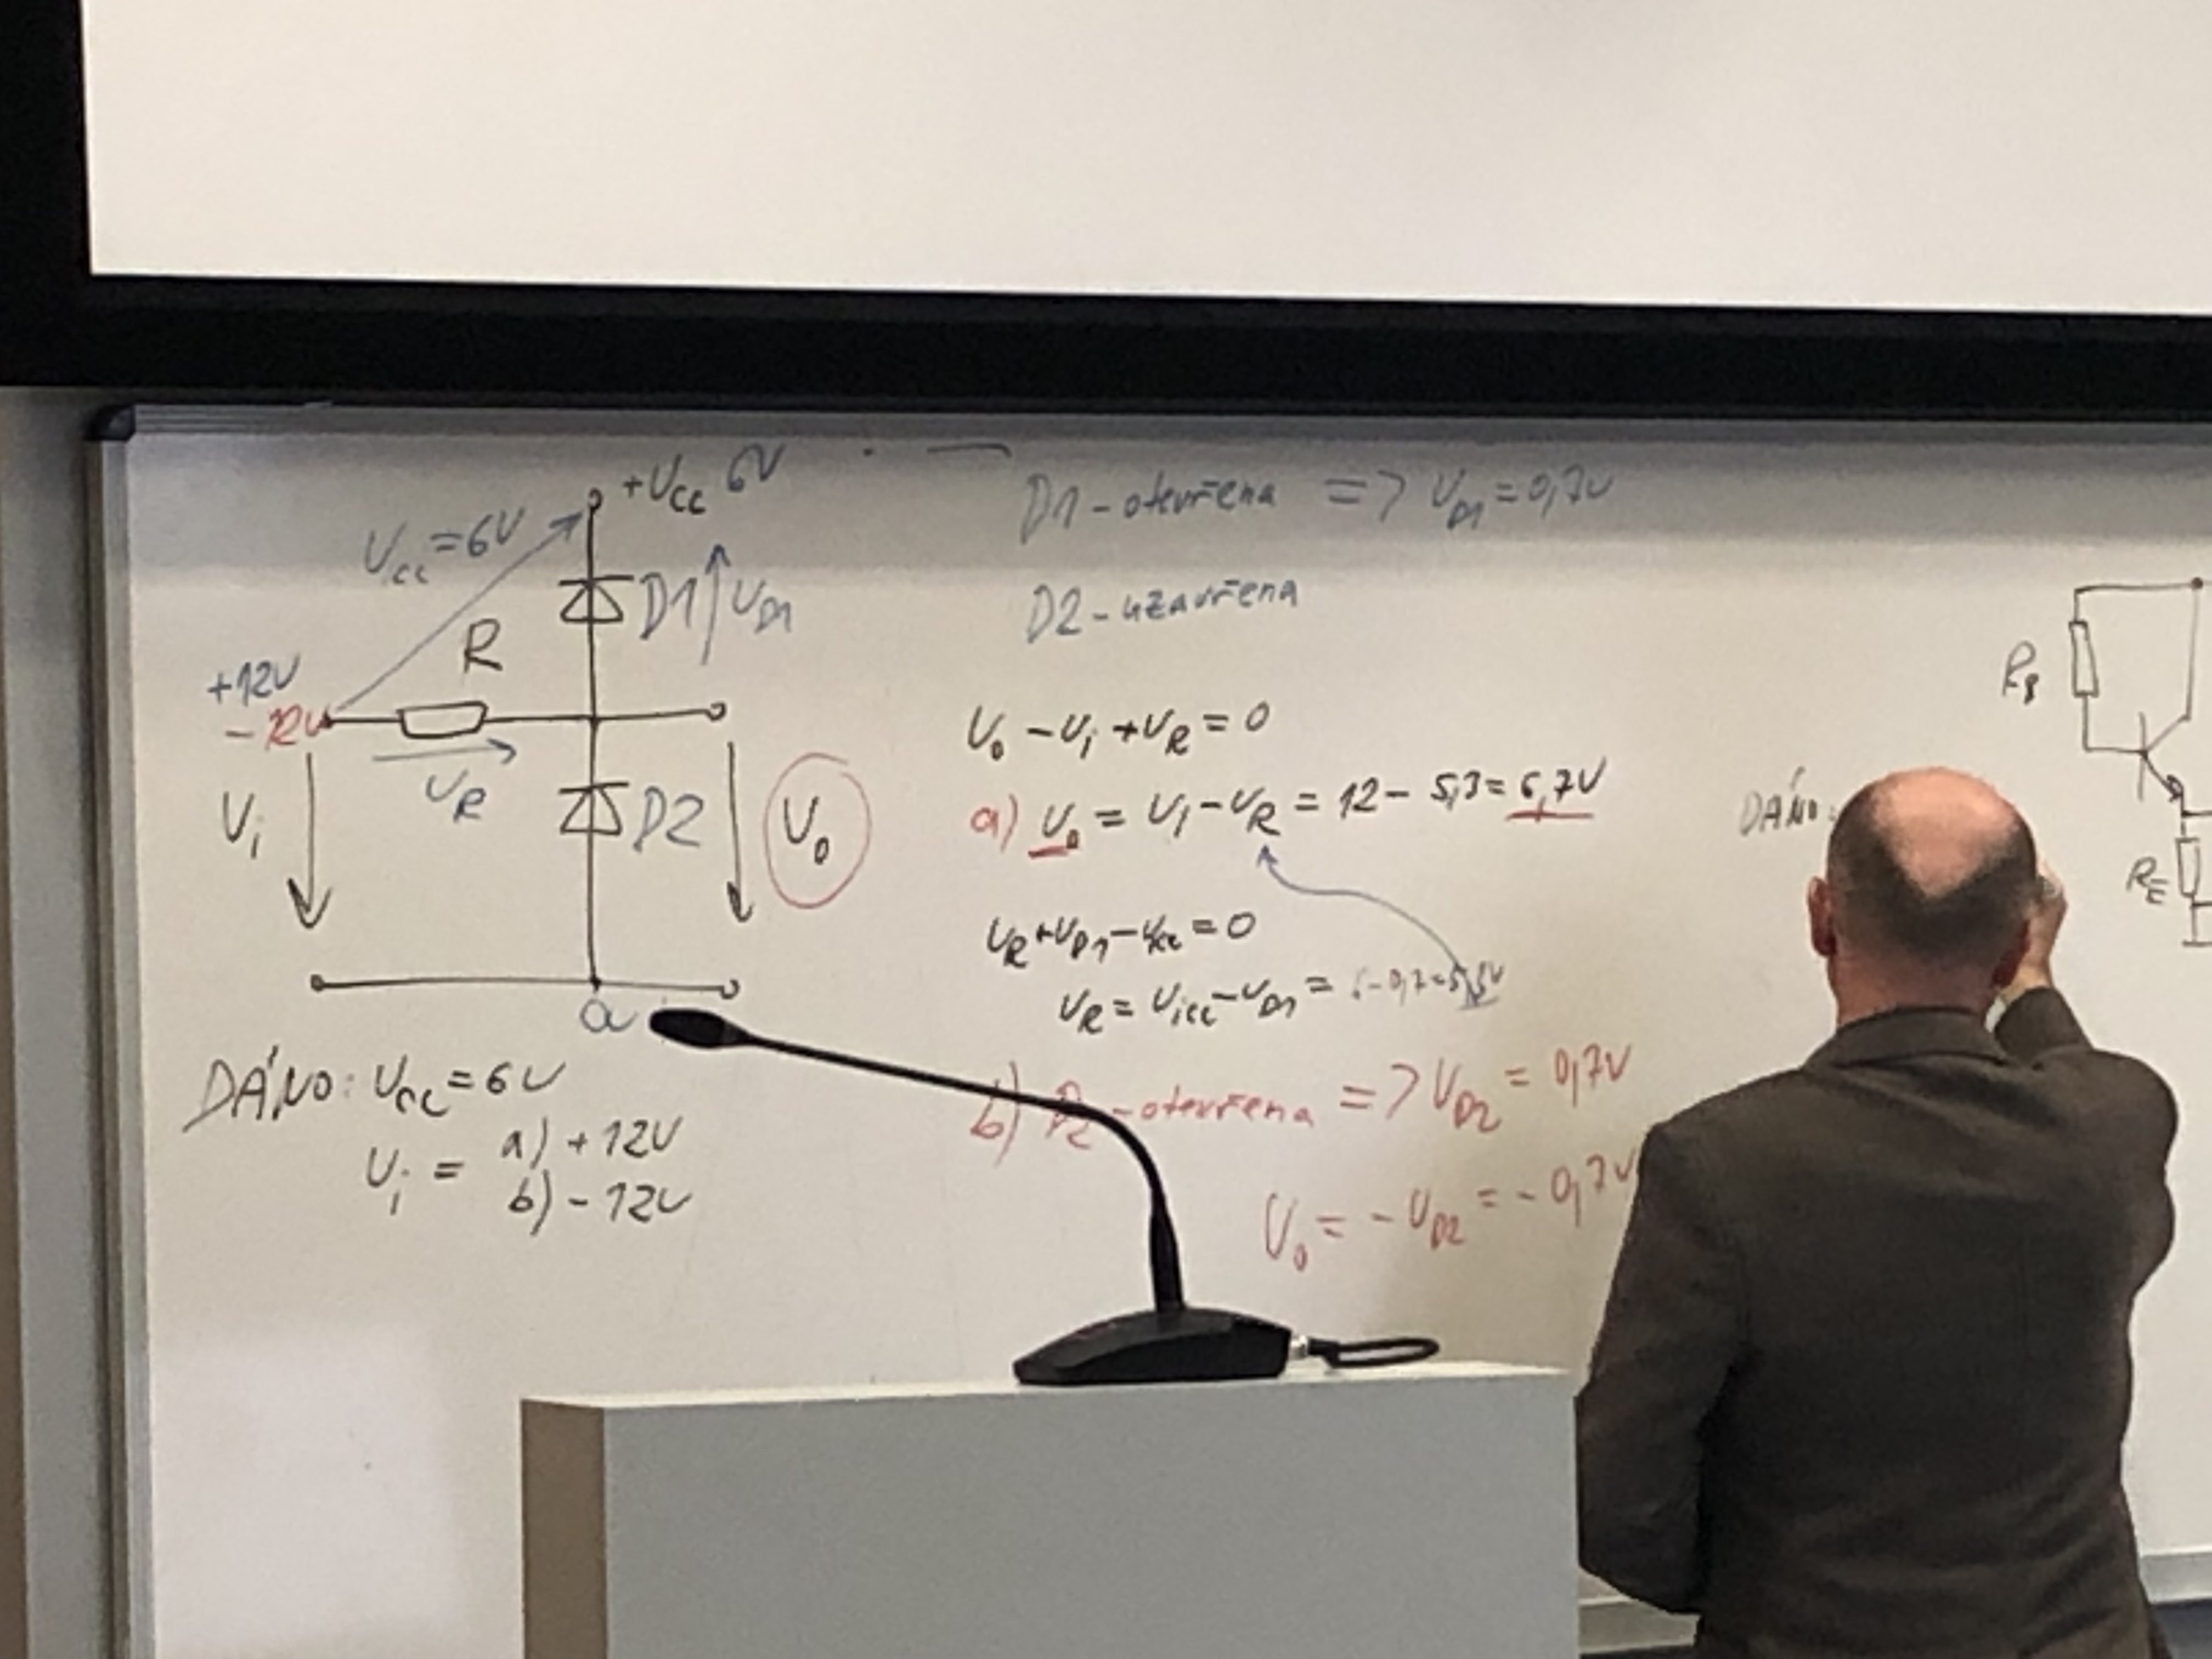 +Ucc 6V
Ucc = 6V
D1
UD1
R
+12V
-12V
UR
Ui
D2
Uo
a
DÁNO: Ucc = 6V
Ui = a) +12V
b) -12V
D1 - otevřena => UD1 = 0,7V
D2 - uzavřena
Uo - Ui + UR = 0
a) Uo = Ui - UR = 12 - 5,3 = 6,7V
UR + UD1 - Ucc = 0
UR = Uicc - UD1 = 6 - 0,7 = 5,3V
b) D2 - otevřena => UD2 = 0,7V
Uo = -UD2 = -0,7V
RB
DÁNO:
RE